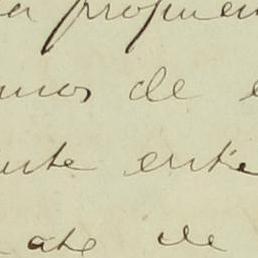 a propuen
mos de e
nte ente
ate de